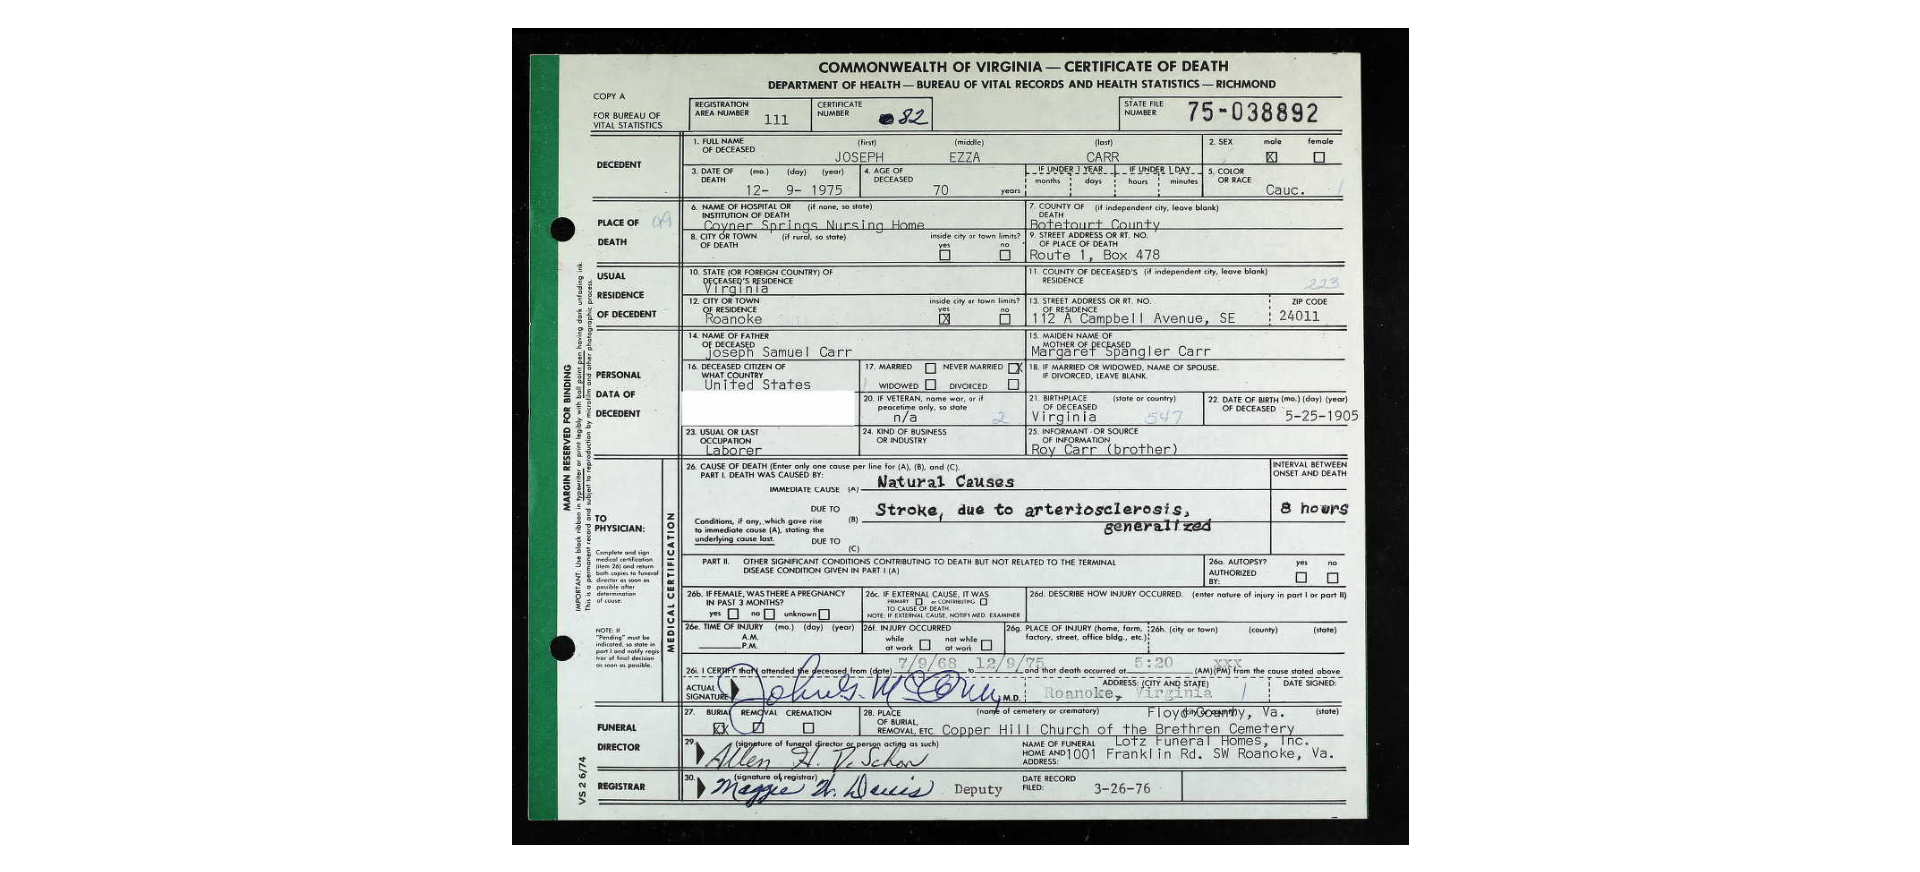 COMMONWEALTH OF VIRGINIA — CERTIFICATE OF DEATH
DEPARTMENT OF HEALTH — BUREAU OF VITAL RECORDS AND HEALTH STATISTICS — RICHMOND
COPY A
FOR BUREAU OF
VITAL STATISTICS
REGISTRATION
AREA NUMBER 111
CERTIFICATE
NUMBER 82
STATE FILE
NUMBER 75-038892
DECEDENT
1. FULL NAME
OF DECEASED
(first) (middle) (last)
JOSEPH EZZA CARR
2. SEX male female
X
3. DATE OF (mo.) (day) (year)
DEATH
12- 9- 1975
4. AGE OF
DECEASED
70 years
IF UNDER 1 YEAR IF UNDER 1 DAY
months days hours minutes
5. COLOR
OR RACE
Cauc.
PLACE OF
DEATH
6. NAME OF HOSPITAL OR (if none, so state)
INSTITUTION OF DEATH
Coyner Springs Nursing Home
7. COUNTY OF (if independent city, leave blank)
DEATH
Botetourt County
8. CITY OR TOWN (if rural, so state)
OF DEATH
inside city or town limits?
yes no
9. STREET ADDRESS OR RT. NO.
OF PLACE OF DEATH
Route 1, Box 478
USUAL
RESIDENCE
OF DECEDENT
10. STATE (OR FOREIGN COUNTRY) OF
DECEASED'S RESIDENCE
Virginia
11. COUNTY OF DECEASED'S (if independent city, leave blank)
RESIDENCE
223
12. CITY OR TOWN
OF RESIDENCE
Roanoke
inside city or town limits?
yes no
X
13. STREET ADDRESS OR RT. NO.
OF RESIDENCE
112 A Campbell Avenue, SE
ZIP CODE
24011
PERSONAL
DATA OF
DECEDENT
14. NAME OF FATHER
OF DECEASED
Joseph Samuel Carr
15. MAIDEN NAME OF
MOTHER OF DECEASED
Margaret Spangler Carr
16. DECEASED CITIZEN OF
WHAT COUNTRY
United States
17. MARRIED NEVER MARRIED X
WIDOWED DIVORCED
18. IF MARRIED OR WIDOWED, NAME OF SPOUSE.
IF DIVORCED, LEAVE BLANK.
20. IF VETERAN, name war, or if
peacetime only, so state
n/a 2
21. BIRTHPLACE (state or country)
OF DECEASED
Virginia 547
22. DATE OF BIRTH (mo.) (day) (year)
OF DECEASED
5-25-1905
23. USUAL OR LAST
OCCUPATION
Laborer
24. KIND OF BUSINESS
OR INDUSTRY
25. INFORMANT - OR SOURCE
OF INFORMATION
Roy Carr (brother)
MARGIN RESERVED FOR BINDING
IMPORTANT: Use black ribbon in typewriter or print legibly with ball point pen having dark unfading ink.
This is a permanent record and subject to reproduction by microfilm and other photographic process.
VS 2 6/74
TO
PHYSICIAN:
Complete and sign
medical certification
(item 26) and return
both copies to funeral
director as soon as
possible after
determination
of cause.
NOTE: If
"Pending" must be
indicated, so state in
part I and notify regis-
trar of final decision
as soon as possible.
MEDICAL CERTIFICATION
26. CAUSE OF DEATH (Enter only one cause per line for (A), (B), and (C).
PART I. DEATH WAS CAUSED BY:
IMMEDIATE CAUSE (A) Natural Causes
INTERVAL BETWEEN
ONSET AND DEATH
DUE TO
(B) Stroke, due to arteriosclerosis,
generalized
8 hours
Conditions, if any, which gave rise
to immediate cause (A), stating the
underlying cause last.
DUE TO
(C)
PART II. OTHER SIGNIFICANT CONDITIONS CONTRIBUTING TO DEATH BUT NOT RELATED TO THE TERMINAL
DISEASE CONDITION GIVEN IN PART I (A)
26a. AUTOPSY? yes no
AUTHORIZED
BY:
26b. IF FEMALE, WAS THERE A PREGNANCY
IN PAST 3 MONTHS?
yes no unknown
26c. IF EXTERNAL CAUSE, IT WAS
PRIMARY or CONTRIBUTING
TO CAUSE OF DEATH.
NOTE: IF EXTERNAL CAUSE, NOTIFY MED. EXAMINER
26d. DESCRIBE HOW INJURY OCCURRED. (enter nature of injury in part I or part II)
26e. TIME OF INJURY (mo.) (day) (year)
A.M.
P.M.
26f. INJURY OCCURRED
while at work not while at work
26g. PLACE OF INJURY (home, farm,
factory, street, office bldg., etc.)
26h. (city or town) (county) (state)
26i. I CERTIFY that I attended the deceased from (date) 7/9/68 to 12/9/75 and that death occurred at 5:20 (AM)(PM) XXX from the cause stated above
ACTUAL
SIGNATURE
M.D.
ADDRESS: (CITY AND STATE)
Roanoke, Virginia
DATE SIGNED:
FUNERAL
DIRECTOR
27. BURIAL REMOVAL CREMATION
XX
28. PLACE
OF BURIAL,
REMOVAL, ETC.
(name of cemetery or crematory) (county) (state)
Floyd County, Va.
Copper Hill Church of the Brethren Cemetery
29. (signature of funeral director or person acting as such)
Allen H.
NAME OF FUNERAL
HOME AND
ADDRESS:
Lotz Funeral Homes, Inc.
1001 Franklin Rd. SW Roanoke, Va.
REGISTRAR
30. (signature of registrar)
Maggie W. Davis Deputy
DATE RECORD
FILED: 3-26-76